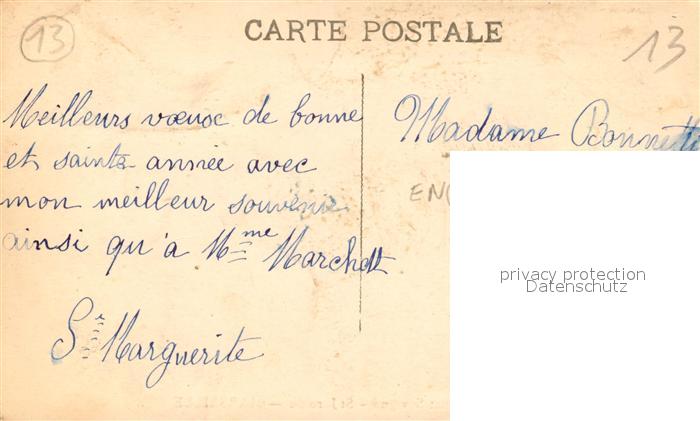 13
CARTE POSTALE
13
Meilleurs vœux de bonne
et sainte année avec
mon meilleur souvenir
ainsi qu'à Mme
Sr Marguerite
Madame
privacy protection
Datenschutz